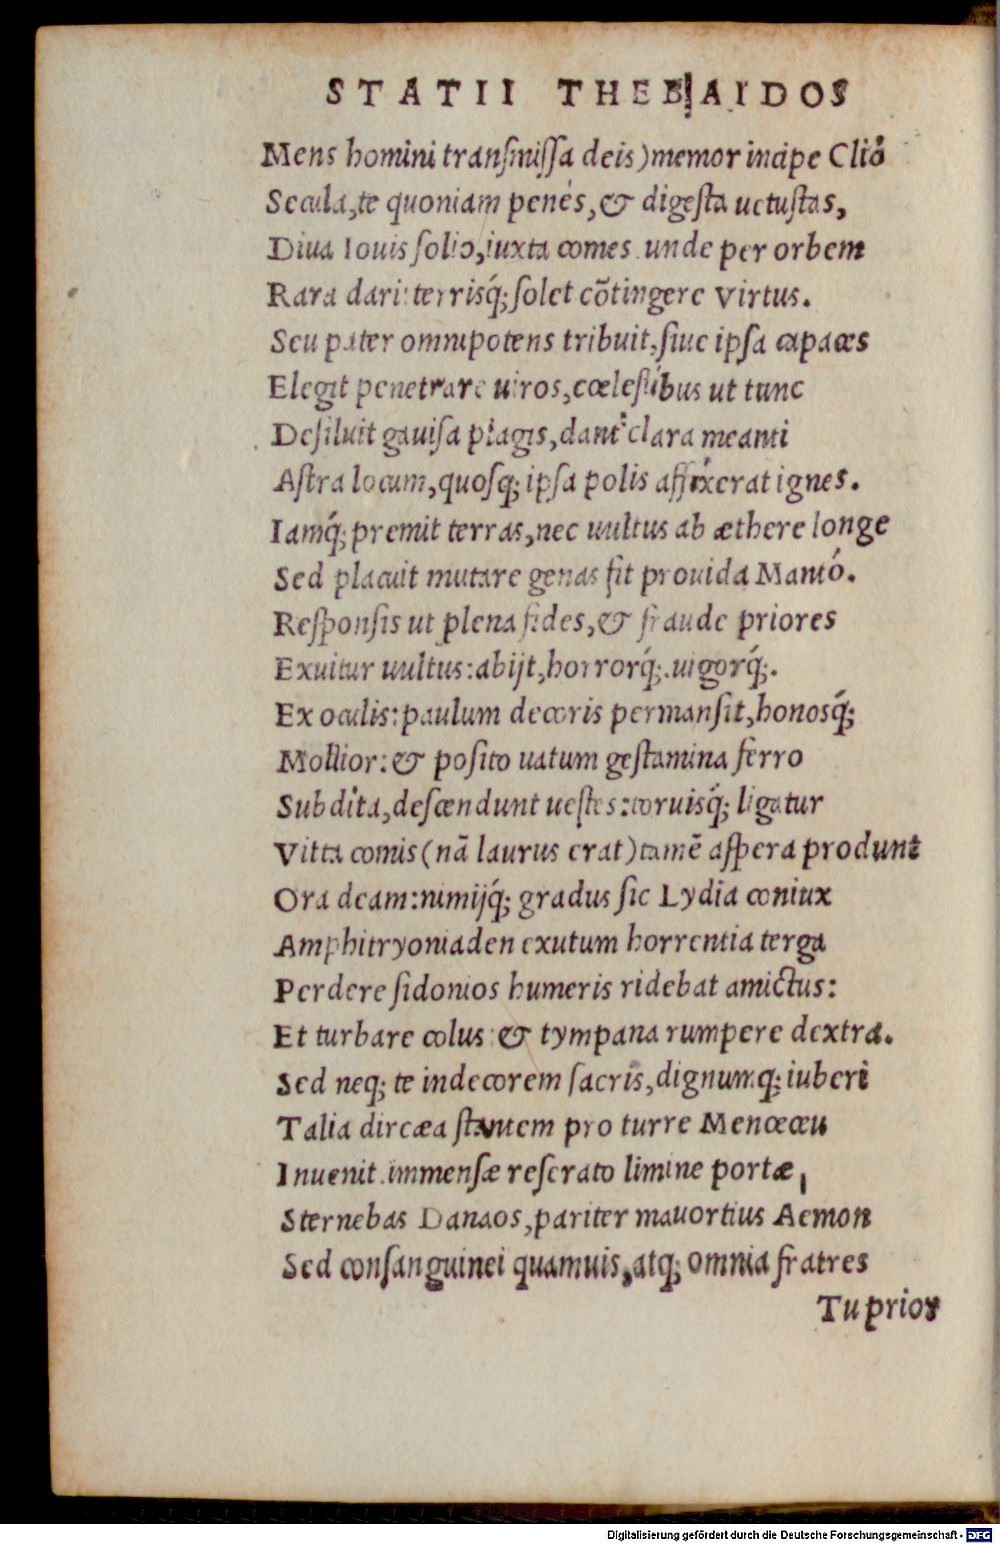 STATII THEBAIDOS
Mens homini transmissa deis) memor incipe Clió
Secula, te quoniam penés, & digesta uetustas,
Diua Iouis solio, iuxta comes. unde per orbem
Rara dari: terrisq́; solet cõtingere Virtus.
Seu pater omnipotens tribuit, siue ipsa capaces
Elegit penetrare uiros, cœlestibus ut tunc
Desiluit gauisa plagis, dant clara meanti
Astra locum, quosq; ipsa polis affixerat ignes.
Iamq́; premit terras, nec uultus ab æthere longe
Sed placuit mutare genas fit prouida Mantó.
Responsis ut plena fides, & fraude priores
Exuitur uultus: abijt, horrorq́;. uigorq́;.
Ex oculis: paulum decoris permansit, honosq́;
Mollior: & posito uatum gestamina ferro
Subdita, descendunt uestes: toruisq́; ligatur
Vitta comis (nã laurus erat) tamẽ aspera produnt
Ora deam: nimijq́; gradus sic Lydia coniux
Amphitryoniaden exutum horrentia terga
Perdere sidonios humeris ridebat amictus:
Et turbare colus: & tympana rumpere dextra.
Sed neq; te indecorem sacris, dignumq; iuberi
Talia dircæa stantem pro turre Menœceu
Inuenit. immensæ reserato limine portæ,
Sternebas Danaos, pariter mauortius Aemon
Sed consanguinei quamuis, atq; omnia fratres
Tu prior
Digitalisierung gefördert durch die Deutsche Forschungsgemeinschaft - DFG